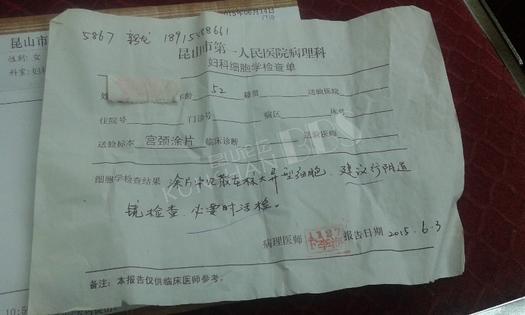 昆山市
2015年06月14日
性别：女
科室：妇科
5867
昆山市第一人民医院病理科
妇科细胞学检查单
年龄 52 籍贯 送验医院
住院号 门诊号 病区 床号
送验标本 宫颈涂片 临床诊断 送验医师
细胞学检查结果 涂片中见散在核大异型细胞，建议行阴道
镜检查，必要时活检。
病理医师 报告日期 2015.6.3
备注：本报告仅供临床医师参考。
昆山论坛
KUNSHAN BBS